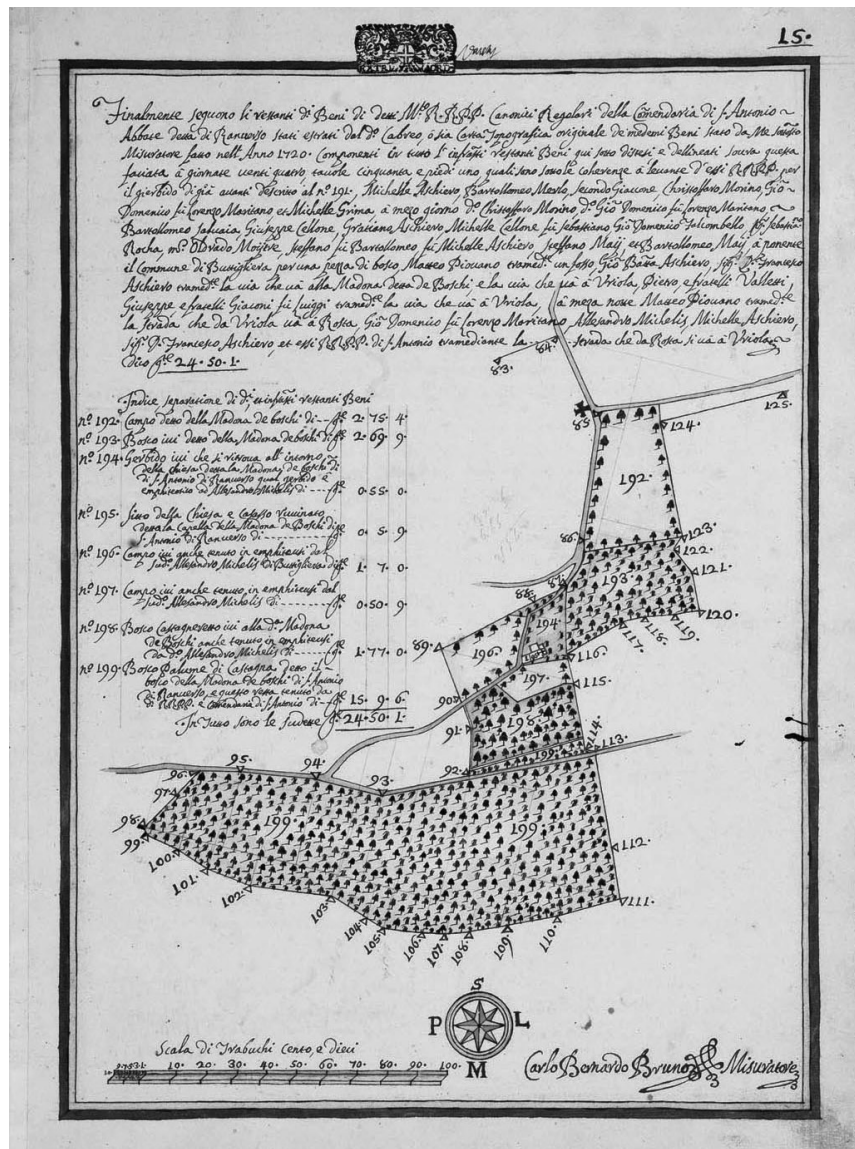 15.
Finalmente seguono li restanti di Beni di detti M.to R.R.P.P. Canonici Regolari della Comendaria di s. Antonio
Abbate detta di Ranverso stati estrati dal d.o Cabreo, ò sia Carta Topografica originale de medemi Beni stato da Me
Misuratore fatto nell'Anno 1720. Componenti in tutto l'infra restanti Beni qui sotto distesi e delineati sovra questa
faciata à giornate venti quatro, tavole cinquanta, e piedi uno quali sono sotto le coherenze à levante d'essi RR.PP. per
il gierbido di già avanti descrito al n.o 191., Michelle Aschiero, Bartolomeo Merlo, secondo Giacone Christoffaro Morino, Gio
Domenico fù Lorenzo Maritano et Michelle Grima, à mezo giorno d.o Christoffaro Morino, d.o Gio Domenico fù Lorenzo Maritano,
Bartolomeo Giuseppe Cellone, Gratiano Aschiero Michelle Cellone fù Sebastiano Gio Domenico
Rocha, Steffano fù Bartolomeo fù Michelle Aschiero Steffano Maij et Bartolomeo Maij à ponente
il Commune di Buttigliera per una pezza di bosco, Matteo Piovano tramed.e un fosso, Gio Batta Aschiero, Francesco
Aschiero tramed.e la via che và alla Madona detta de Boschi e la via che và à Vriola, Pietro, e fratelli Valletti,
Giuseppe, e fratelli Giaconi fù Luiggi tramed.e la via che và à Vriola, à meza notte Matteo Piovano tramed.te
la strada che da Vriola và à Rosta, Gio Domenico fù Lorenzo Maritano Allesandro Michelis, Michelle Aschiero,
Francesco Aschiero, et essi R.R.P.P. di s. Antonio tramediante la strada che da Rosta si và à Vriola
dico g.te 24. 50. 1.
Indice separatione di d.i restanti Beni
n.o 192. Campo detto della Madona de boschi di g.te 2. 75. 4.
n.o 193. Bosco ivi detto della Madona de boschi di g.te 2. 69. 9.
n.o 194. Gerbido ivi che si ritrova all'intorno
della chiesa detta la Madona de boschi di
di s. Antonio di Ranverso qual gerbido è
emphiteotico ad Allesandro Michelis di g.te 0. 55. 0.
n.o 195. Sitto della Chiesa e Casasso vicinato
detta la Capella della Madona de Boschi di
s. Antonio di Ranverso di g.te 0. 5. 9.
n.o 196. Campo ivi anche tenuto in emphiteusi dal
sud.o Allesandro Michelis di Buttigliera di g.te 1. 7. 0.
n.o 197. Campo ivi anche tenuto in emphiteusi dal
sud.o Allesandro Michelis di g.te 0. 50. 9.
n.o 198. Bosco Castagneretto ivi alla d.a Madona
de Boschi anche tenuto in emphiteusi
da d.o Allesandro Michelis di g.te 1. 77. 0.
n.o 199. Bosco Palume di Castagna detto il
bosco della Madona de boschi di s. Antonio
di Ranverso, e questo resta tenuto da
di RR.PP. e Comendaria di s. Antonio di g.te 15. 9. 6.
In Tutto sono le sudette g.te 24. 50. 1.
83. 84. 85. 125. 124.
192.
86. 123.
122.
87. 193. 121.
88. 120.
89. 194. 117. 118. 119.
196. 116.
197. 115.
90.
91. 198. 114.
92. 199. 113.
96. 95. 94. 93.
97.
98. 199. 199.
99. 112.
100.
101.
102. 111.
103.
104. 110.
105. 106. 107. 108. 109.
S
P L
M
Scala di Trabuchi Cento, e dieci
10. 20. 30. 40. 50. 60. 70. 80. 90. 100.
Carlo Bernardo Bruno Misuratore